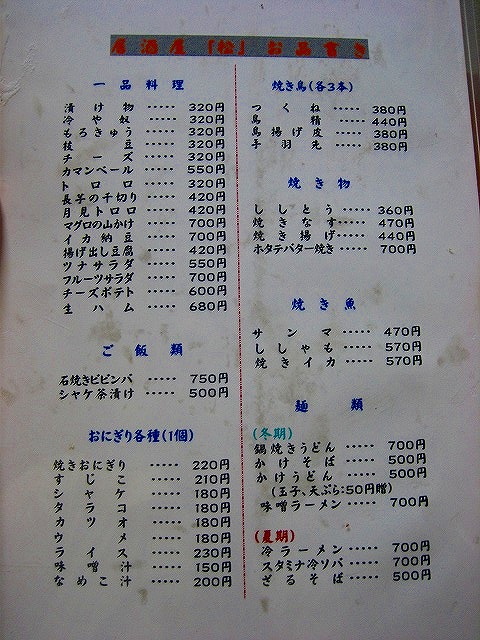 居酒屋「松」お品書き
一品料理
漬け物 ‥‥‥ 320円
冷や奴 ‥‥‥ 320円
もろきゅう ‥‥‥ 320円
枝豆 ‥‥‥ 320円
チーズ ‥‥‥ 320円
カマンベール ‥‥‥ 550円
トロロ ‥‥‥ 320円
長芋の千切り ‥‥‥ 420円
月見トロロ ‥‥‥ 420円
マグロの山かけ ‥‥‥ 700円
イカ納豆 ‥‥‥ 700円
揚げ出し豆腐 ‥‥‥ 420円
ツナサラダ ‥‥‥ 550円
フルーツサラダ ‥‥‥ 700円
チーズポテト ‥‥‥ 600円
生ハム ‥‥‥ 680円
ご飯類
石焼きビビンバ ‥‥‥ 750円
シャケ茶漬け ‥‥‥ 500円
おにぎり各種(1個)
焼きおにぎり ‥‥‥ 220円
すじこ ‥‥‥ 210円
シャケ ‥‥‥ 180円
タラコ ‥‥‥ 180円
カツオ ‥‥‥ 180円
ウメ ‥‥‥ 180円
ライス ‥‥‥ 230円
味噌汁 ‥‥‥ 150円
なめこ汁 ‥‥‥ 200円
焼き鳥(各3本)
つくね ‥‥‥ 380円
鳥精 ‥‥‥ 440円
鳥揚げ皮 ‥‥‥ 380円
手羽先 ‥‥‥ 380円
焼き物
ししとう ‥‥‥ 360円
焼きなす ‥‥‥ 470円
焼き揚げ ‥‥‥ 440円
ホタテバター焼き ‥‥‥ 700円
焼き魚
サンマ ‥‥‥ 470円
ししゃも ‥‥‥ 570円
焼きイカ ‥‥‥ 570円
麺類
(冬期)
鍋焼きうどん ‥‥‥ 700円
かけそば ‥‥‥ 500円
かけうどん ‥‥‥ 500円
(玉子、天ぷら:50円贈)
味噌ラーメン ‥‥‥ 700円
(夏期)
冷ラーメン ‥‥‥ 700円
スタミナ冷ソバ ‥‥‥ 700円
ざるそば ‥‥‥ 500円